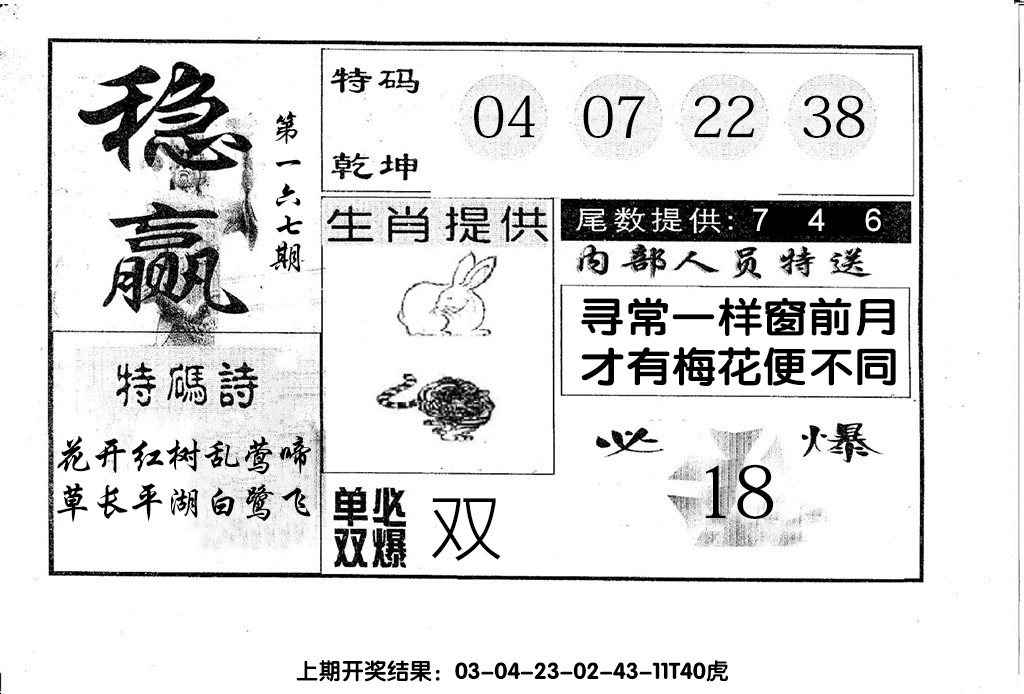 稳赢
第一六七期
特码
乾坤
04 07 22 38
特碼詩
花开红树乱莺啼
草长平湖白鹭飞
生肖提供
单双必爆
双
尾数提供: 7 4 6
内部人员特送
寻常一样窗前月
才有梅花便不同
必爆
18
上期开奖结果：03-04-23-02-43-11T40虎